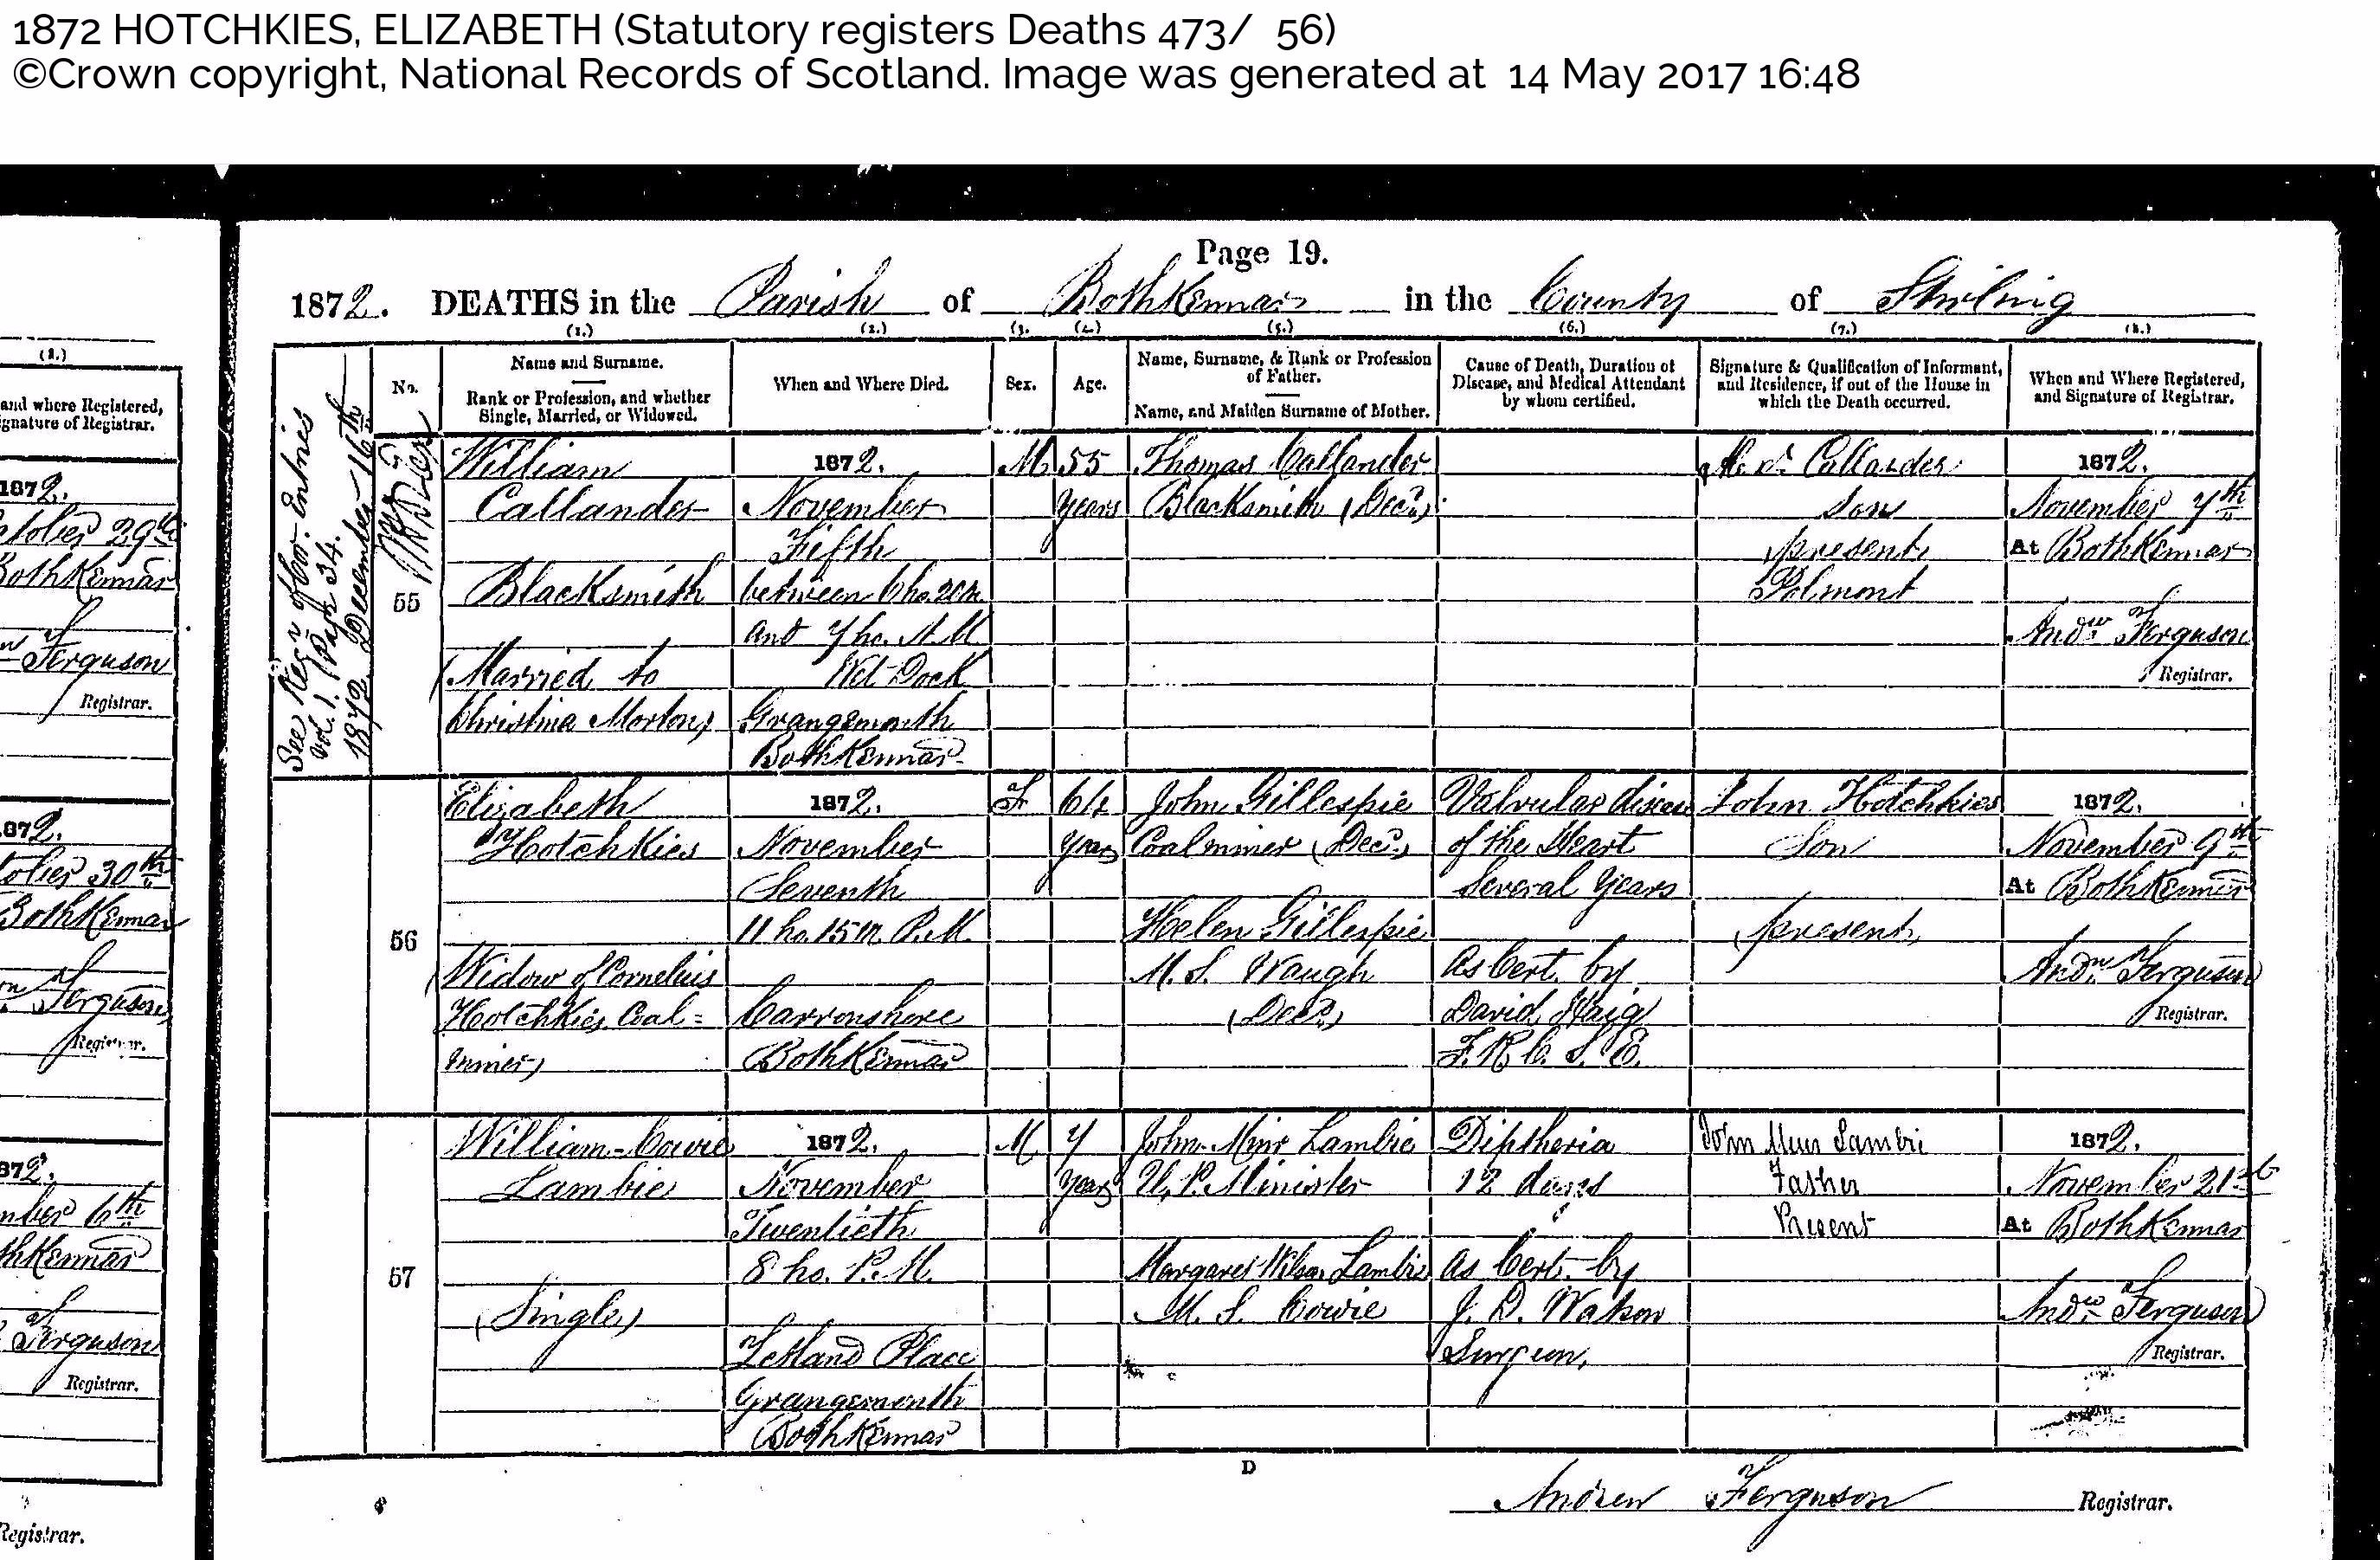 1872 HOTCHKIES, ELIZABETH (Statutory registers Deaths 473/ 56)
©Crown copyright, National Records of Scotland. Image was generated at 14 May 2017 16:48
(8.)
and where Registered,
gnature of Registrar.
1872.
ctober 29th
BothKennar
Ferguson
Registrar.
1872.
tober 30th
BothKennar
Ferguson
Registrar.
1872.
mber 6th
thKennar
Ferguson
Registrar.
Registrar.
Page 19.
1872. DEATHS in the Parish of BothKennar in the County of Stirling
(1.) (2.) (3. (4.) (5.) (6.) (7.) (8.)
No.
Name and Surname.
Rank or Profession, and whether
Single, Married, or Widowed.
When and Where Died.
Sex.
Age.
Name, Surname, & Rank or Profession
of Father.
Name, and Maiden Surname of Mother.
Cause of Death, Duration of
Disease, and Medical Attendant
by whom certified.
Signature & Qualification of Informant,
and Residence, if out of the House in
which the Death occurred.
When and Where Registered,
and Signature of Registrar.
See Regr of Cor. Entries
Vol. 1. Page 34.
1872 December 16th
55
William
Callander
Blacksmith
(Married to
Christina Morton)
1872.
November
Fifth
between 6 ho. 20m.
and 7 ho. A.M.
Wet Dock
Grangemouth
BothKennar
M
55
years
Thomas Callander
Blacksmith (Decd)
Callander
Son
(present)
Polmont
1872.
November 7th
At BothKennar
Andw Ferguson
Registrar.
56
Elizabeth
HotchKies
(Widow of Cornelius
HotchKies, Coal=
miner)
1872.
November
Seventh
11 ho. 15 m. P.M.
Carronshore
BothKennar
F
64
years
John Gillespie
Coalminer (Decd)
Helen Gillespie
M.S. Waugh
(Decd)
Valvular disease
of the Heart
Several years
As Cert. by
David Haig
F.R.C.S.E.
John Hotchkies
Son
(present)
1872.
November 9th
At BothKennar
Andw Ferguson
Registrar.
57
William Cowie
Lambie
(Single)
1872.
November
Twentieth
8 ho. P.M.
Zetland Place
Grangemouth
BothKennar
M
7
years
John Muir Lambie
U.P. Minister
Margaret Wilson Lambie
M.S. Cowie
Diptheria
12 days
As Cert. by
J. D. Watson
Surgeon,
John Muir Lambie
Father
Present
1872.
November 21st
At BothKennar
Andw Ferguson
Registrar.
D
Andrew Ferguson Registrar.